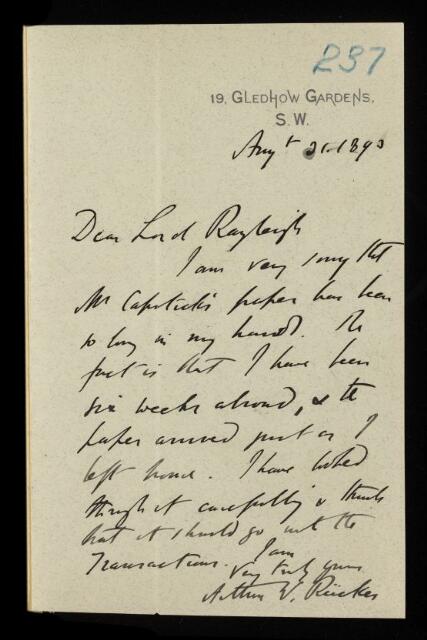 237
19, GLEDHOW GARDENS,
S.W.
Augt 21. 1893
Dear Lord Rayleigh
I am very sorry that
Mr Capstick's paper has been
so long in my hands. The
fact is that I have been
six weeks abroad, & the
paper arrived just as I
left home. I have looked
through it carefully & think
that it should go into the
Transactions.
I am
Very truly yours
Arthur W. Rücker